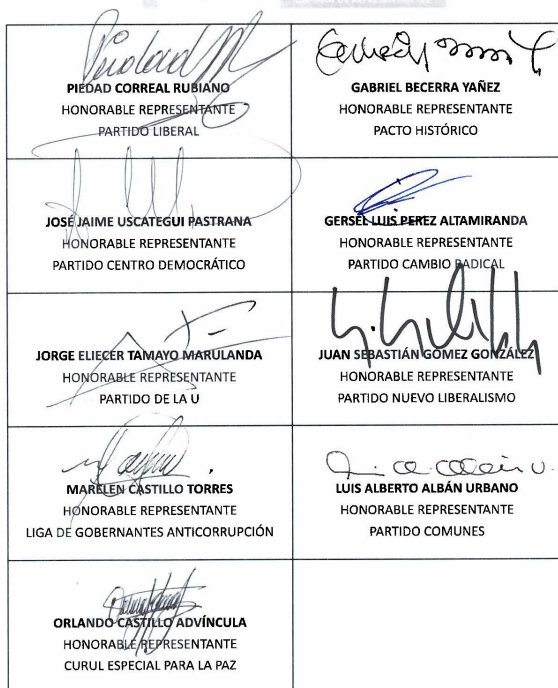 PIEDAD CORREAL RUBIANO
HONORABLE REPRESENTANTE
PARTIDO LIBERAL
GABRIEL BECERRA YAÑEZ
HONORABLE REPRESENTANTE
PACTO HISTÓRICO
JOSÉ JAIME USCATEGUI PASTRANA
HONORABLE REPRESENTANTE
PARTIDO CENTRO DEMOCRÁTICO
GERSEL LUIS PEREZ ALTAMIRANDA
HONORABLE REPRESENTANTE
PARTIDO CAMBIO RADICAL
JORGE ELIECER TAMAYO MARULANDA
HONORABLE REPRESENTANTE
PARTIDO DE LA U
JUAN SEBASTIÁN GÓMEZ GONZÁLEZ
HONORABLE REPRESENTANTE
PARTIDO NUEVO LIBERALISMO
MARELEN CASTILLO TORRES
HONORABLE REPRESENTANTE
LIGA DE GOBERNANTES ANTICORRUPCIÓN
LUIS ALBERTO ALBÁN URBANO
HONORABLE REPRESENTANTE
PARTIDO COMUNES
ORLANDO CASTILLO ADVÍNCULA
HONORABLE REPRESENTANTE
CURUL ESPECIAL PARA LA PAZ